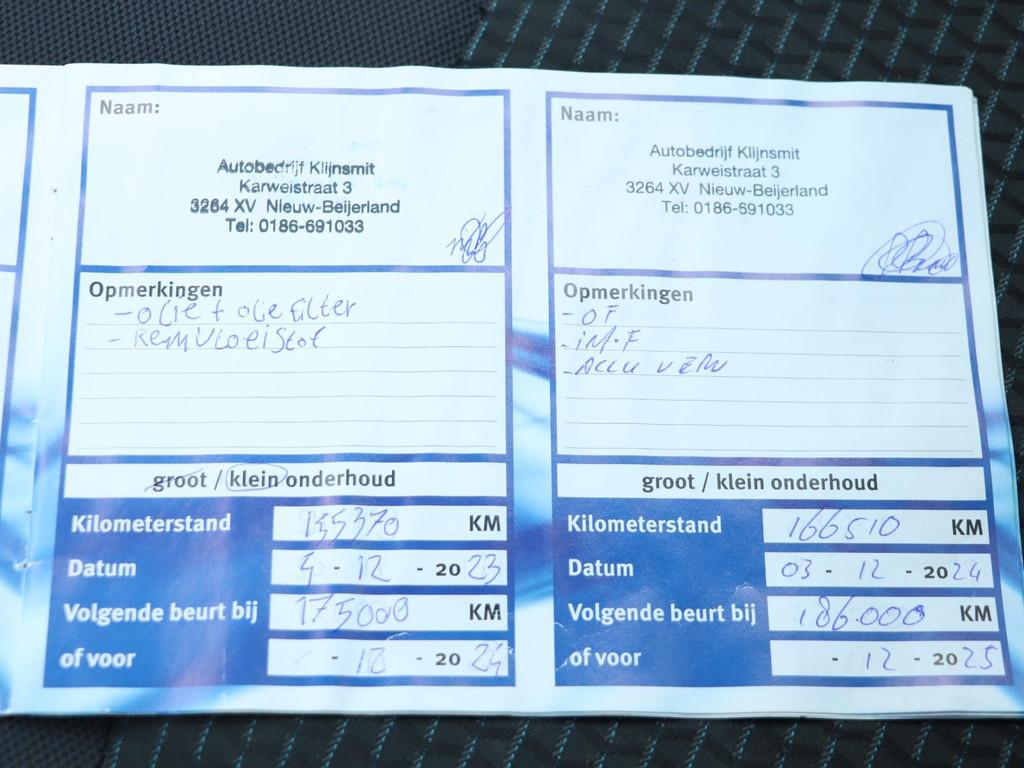 Naam:
Autobedrijf Klijnsmit
Karweistraat 3
3264 XV Nieuw-Beijerland
Tel: 0186-691033
Opmerkingen
- olie + olie filter
- Remvloeistof
groot / klein onderhoud
Kilometerstand 135370 KM
Datum - 12 - 2023
Volgende beurt bij 175000 KM
of voor - 12 - 2024
Naam:
Autobedrijf Klijnsmit
Karweistraat 3
3264 XV Nieuw-Beijerland
Tel: 0186-691033
Opmerkingen
- OF
- iM.F
- ACCU VERV
groot / klein onderhoud
Kilometerstand 166510 KM
Datum 03 - 12 - 2024
Volgende beurt bij 186.000 KM
of voor - 12 - 2025